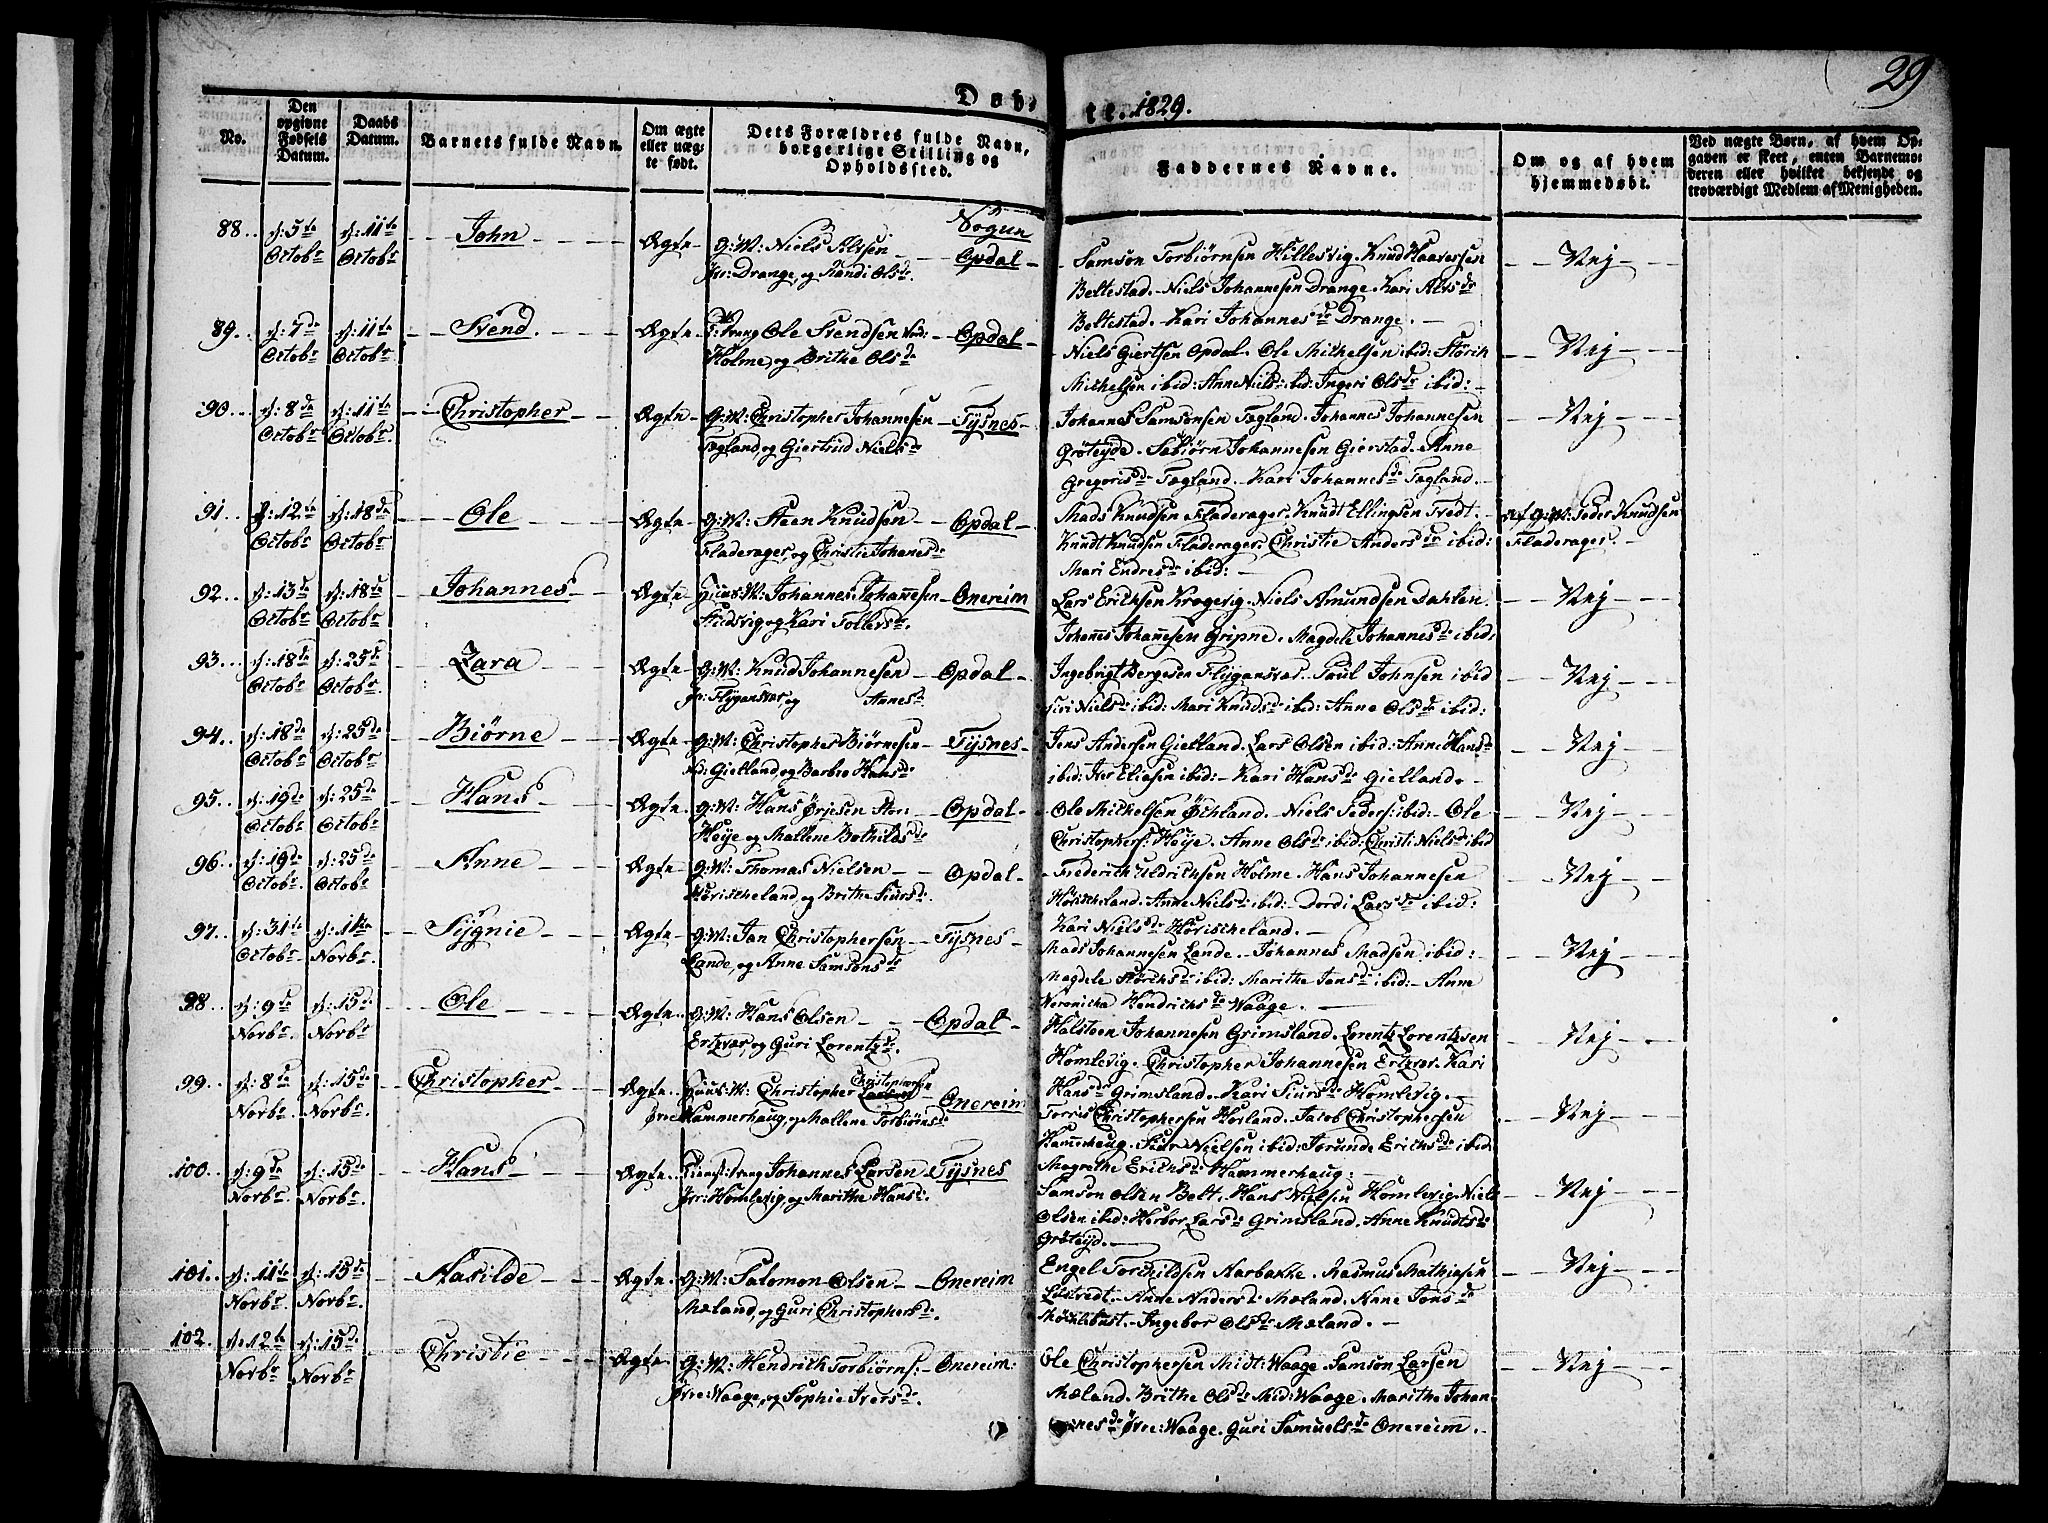 29
Døbte. 1829.
No.
Den opgivne Fødsels Datum.
Daabs Datum.
Barnets fulde Navn.
Om ægte eller uægte født.
Dets Forældres fulde Navn, borgerlige Stilling og Opholdssted.
Faddernes Navne.
Om og af hvem hjemmedøbt.
Ved uægte Børn, af hvem Opgaven er skeet, enten Barnemoderen eller hvilket bekjendt og troværdigt Medlem af Menigheden.
Sogun
88. d: 5te Octobr d: 11te Octobr John Ægte G:M: Niels Alvsen Opdal
Drange, og Randi Olsdr.
Samson Torbiörnsen Hillesvig. Knud Haavessen
Beltestad. Niels Johannesen Drange. Kari Alvsdr
Beltestad. Kari Johannesdr Drange.
Nej
89. d: 7de Octobr d: 11te Octobr Svend. Ægte Ole Svendsen Opdal
Holme, og Brithe Olsdr
Niels Giertsen Opdal. Ole Michelsen ibid: Störik
Michelsen ibid: Anne Nielsdr ibid: Ingeri Olsdr ibid:
Nej
90. d: 8de Octobr d: 11te Octobr Christopher Ægte G:M: Christopher Johannesen Tysnes
Tegland, og Giertrud Nielsdr
Johannes Samsonsen Tegland. Johannes Johannesen
Gröteyde. Sebiörn Johannesen Gierstad. Anne
Gregorisdr Tegland. Kari Johannesdr Tegland.
Nej
91. d: 12te Octobr d: 18de Octobr Ole Ægte G:M: Steen Knudsen Opdal
Fladerager, og Christie Johanesdr
Mads Knudsen Fladerager. Knudt Ellingsen Tvedt.
Knudt Knudsen Fladerager. Christie Andersdr ibid:
Mari Endresdr ibid:
Af G:M: Peder Knudsen
Fladerager.
92. d: 13de Octobr d: 18de Octobr Johannes Ægte Huus:M: Johannes Johannesen Onereim
og Kari Tollevsdr.
Lars Erichsen Kragevig. Niels Amundsen Dahlen.
Johannes Johannesen Gripne. Magdele Johannesdr ibid:
Nej
93. d: 18de Octobr d: 25de Octobr Zara Ægte G:M: Knud Johannesen Opdal
Flygansvær, og Annesdr.
Ingebrigt Bergesen Flygansvær. Poul Johnsen ibid
Siri Nielsdr ibid: Mari Knudsdr ibid: Anne Olsdr ibid:
Nej
94. d: 18de Octobr d: 25de Octobr Biörne Ægte G:M: Christopher Biörnesen Tysnes
Ned: Gielland, og Barbro Hansdr
Jens Andersen Gielland. Lars Olsen ibid: Anne Hansdr
ibid: Iver Eliasen ibid: Kari Hansdr Gielland.
Nej
95. d: 19de Octobr d: 25de Octobr Hans Ægte G:M: Hans Örjesen Stor: Opdal
Höye og Mallene Bothildsdr
Ole Michelsen Öchland. Niels Peders: ibid: Ole
Christophers: Höye. Anne Olsdr ibid: Christi Nielsdr ibid
Nej
96. d: 19de Octobr d: 25de Octobr Anne Ægte G:M: Thomas Nielsen Opdal
Hörischeland, og Brithe Siursdr.
Frederich Uldrichsen Holme. Hans Johannesen
Hörischeland. Anne Nielsdr ibid: Dordi Larsdr ibid:
Kari Nielsdr Hörischeland.
Nej
97. d: 31te Octobr. d: 1ste Norbr. Sygnie Ægte G:M: Jan Christophersen Tysnes
Lande, og Anne Samsonsdr
Mads Johannesen Lande. Johannes Madsen ibid:
Magdele Störchsdr ibid: Marithe Jonsdr ibid: Anne
Veronicha Hendrichsdr Waage.
Nej
98. d: 9de Norbr. d: 15de Norbr. Ole Ægte G:M: Hans Olsen Opdal
Ertzvær, og Guri Lorentzdr.
Halsteen Johannesen Grimsland. Lorentz Lorentzsen
Homlevig. Christopher Johannesen Ertzvær. Kari
Hansdr Grimsland. Kari Siursdr Homlevig.
Nej
99. d: 8de Norbr. d: 15de Norbr. Christopher Ægte Huus:M: Christopher Christophersen Onereim
Övre Hammerhaug, og Mallene Torbiörnsdr
Torris Christophersen Horland. Jacob Christophersen
Hammerhaug. Siur Nielsen ibid: Jorunde Erichsdr ibid:
Magrethe Erichsdr Hammerhaug:
Nej
100. d: 9de Norbr. d: 15de Norbr. Hans Ægte Johannes Larsen Tysnes
Homlevig, og Marithe Hansdr.
Samson Olsen Belt. Hans Nielsen Homlevig. Niels
Olsen ibid: Herbor Larsdr Grimsland. Anne Knudtsdr
Gröteyd.
Nej
101. d: 11te Norbr. d: 15de Norbr. Masilde Ægte G:M: Salomon Olsen Onereim
Mæland, og Guri Christophersdr.
Engel Torchildsen Harbakke. Rasmus Mathiasen
Anne Andersdr Mæland. Anne Jonsdr
Möchlebust. Ingebor Olsdr Mæland.
Nej
102. d: 12te Norbr d: 15de Norbr Christie Ægte G:M: Hendrich Torbiörns: Onereim:
Övre: Waage, og Sophie Iversdr.
Ole Christophersen Midt: Waage. Samson Larsen
Mæland. Brithe Olsdr Mid: Waage. Marithe Johan
nesdr Övre: Waage. Guri Samuelsdr Onereim.
Nej